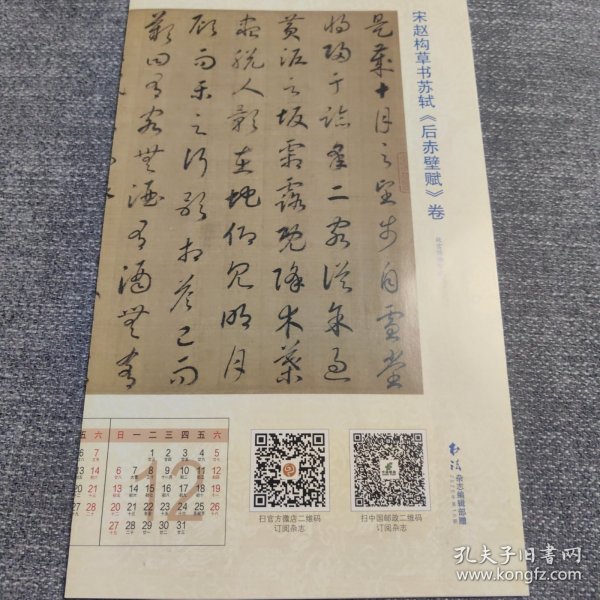 宋赵构草书苏轼《后赤壁赋》卷
是歲十月之望步自雪堂
將歸于臨皋二客從余過
黃泥之坂霜露既降木葉
盡脫人影在地仰見明月
顧而樂之行歌相答已而
歎曰有客無酒有酒無肴
五 六
6 7
13 14
20 21
27 28
12
日 一 二 三 四 五 六
1 2 3 4 5
6 7 8 9 10 11 12
13 14 15 16 17 18 19
20 21 22 23 24 25 26
27 28 29 30 31
扫官方微店二维码
订阅杂志
扫中国邮政二维码
订阅杂志
书法 杂志编辑部赠
孔夫子旧书网
www.kongfz.com